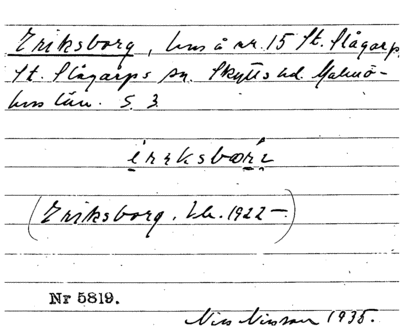 Eriksborg, hus å nr. 15 St. Slågarp,
St. Slågarps sn. Skytts hd. Malmö-
hus län. S. 3.
(Eriksborg. Lk. 1922 –)
Nr 5819.
Nils Nilsson 1935.